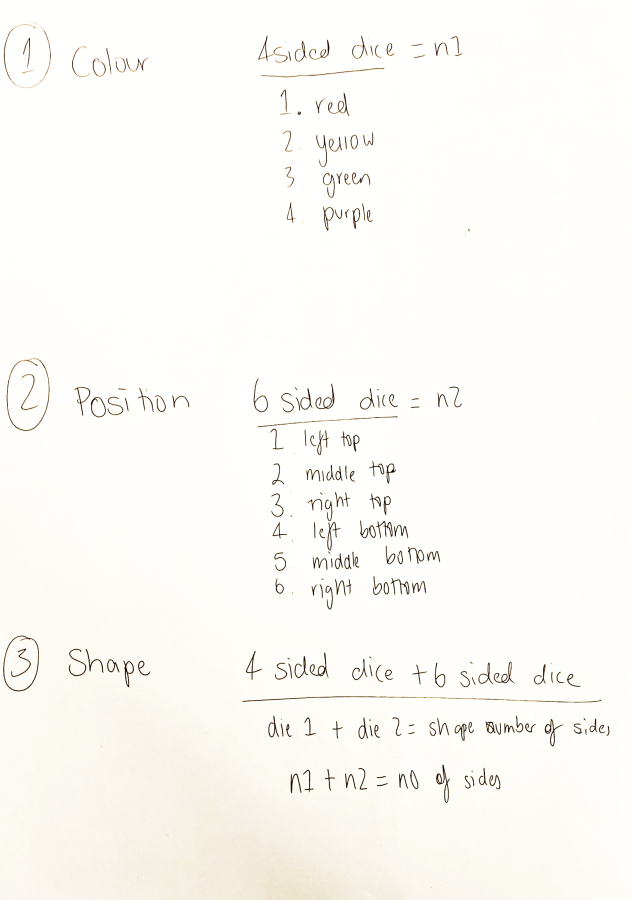 1 Colour 4 sided dice = n1
1. red
2. yellow
3 green
4. purple
2 Position 6 sided dice = n2
1 left top
2 middle top
3. right top
4. left bottom
5 middle bottom
6. right bottom
3 Shape 4 sided dice + 6 sided dice
die 1 + die 2 = shape number of sides
n1 + n2 = no of sides